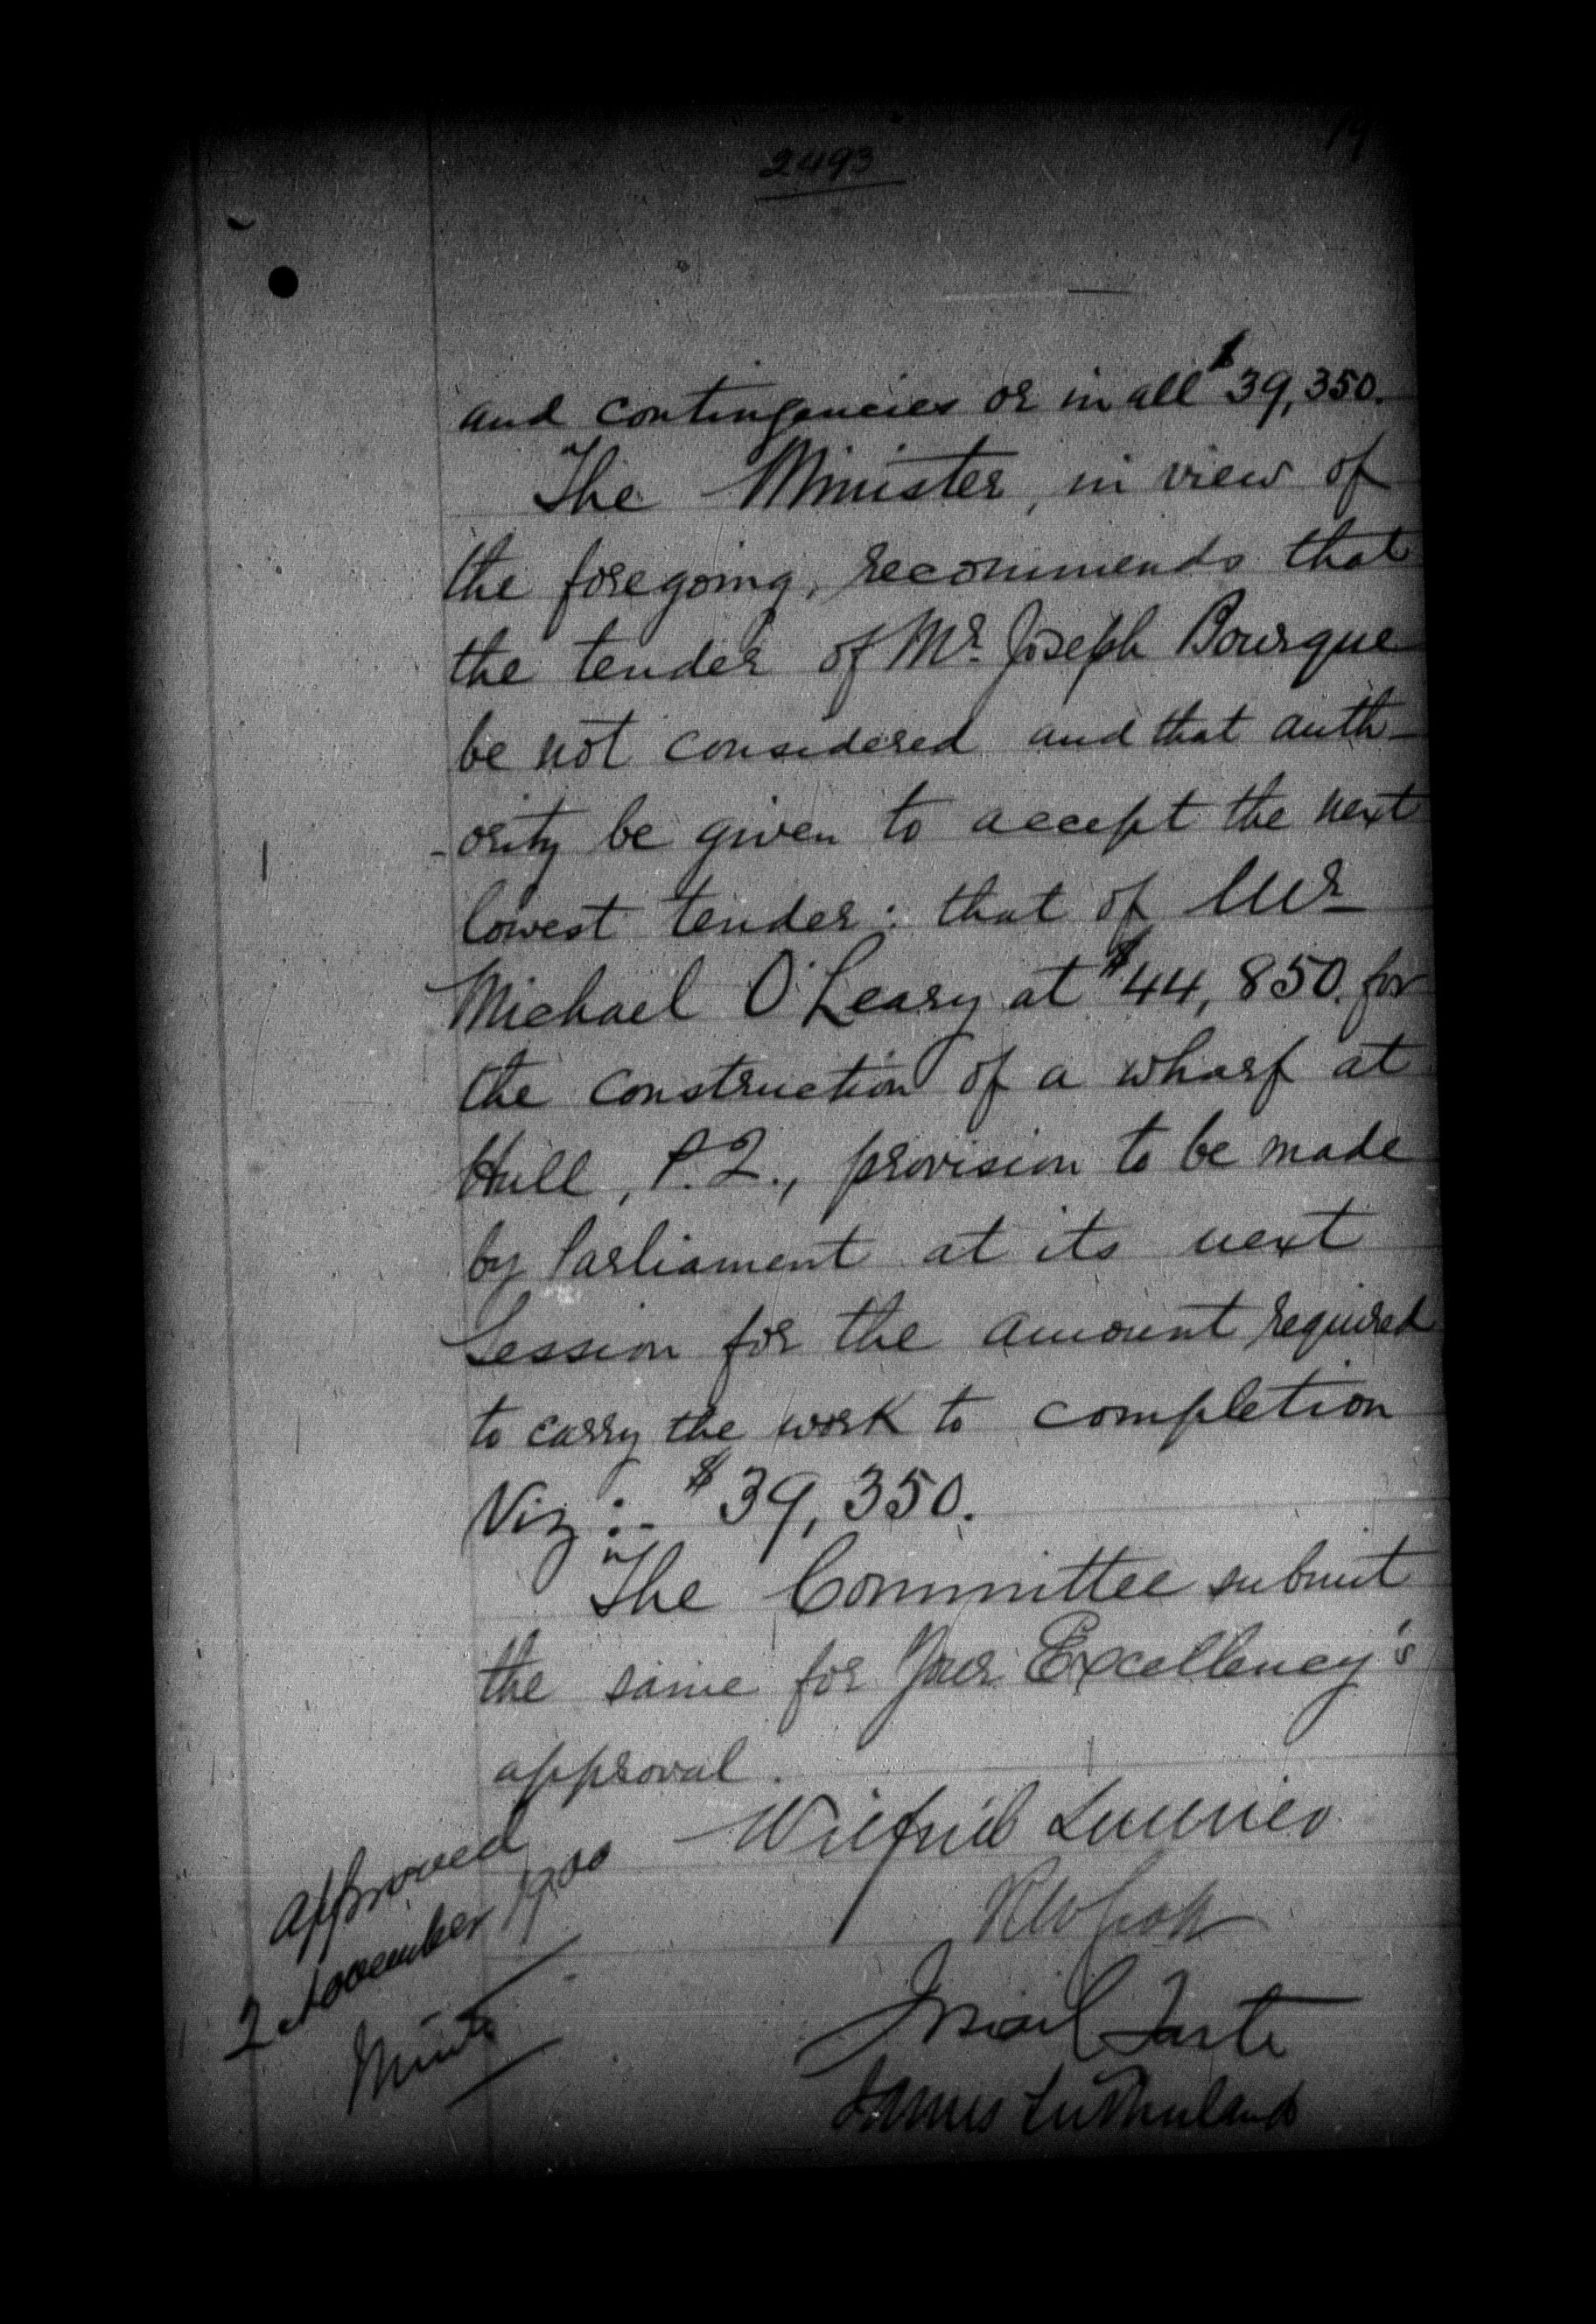 2493
and contingencies or in all $39,350.
The Minister, in view of
the foregoing, recommends that
the tender of Mr. Joseph Bourque
be not considered and that auth-
-ority be given to accept the next
lowest tender: that of Mr
Michael O'Leary at $44,850. for
the construction of a wharf at
Hull, P.Q., provision to be made
by Parliament at its next
Session for the amount required
to carry the work to completion
Viz:- $39,350.
The Committee submit
the same for Your Excellency's
approval.
Wilfrid Laurier
RW Scott
J Israel Tarte
James Sutherland
Approved
2 November 1900
Minto